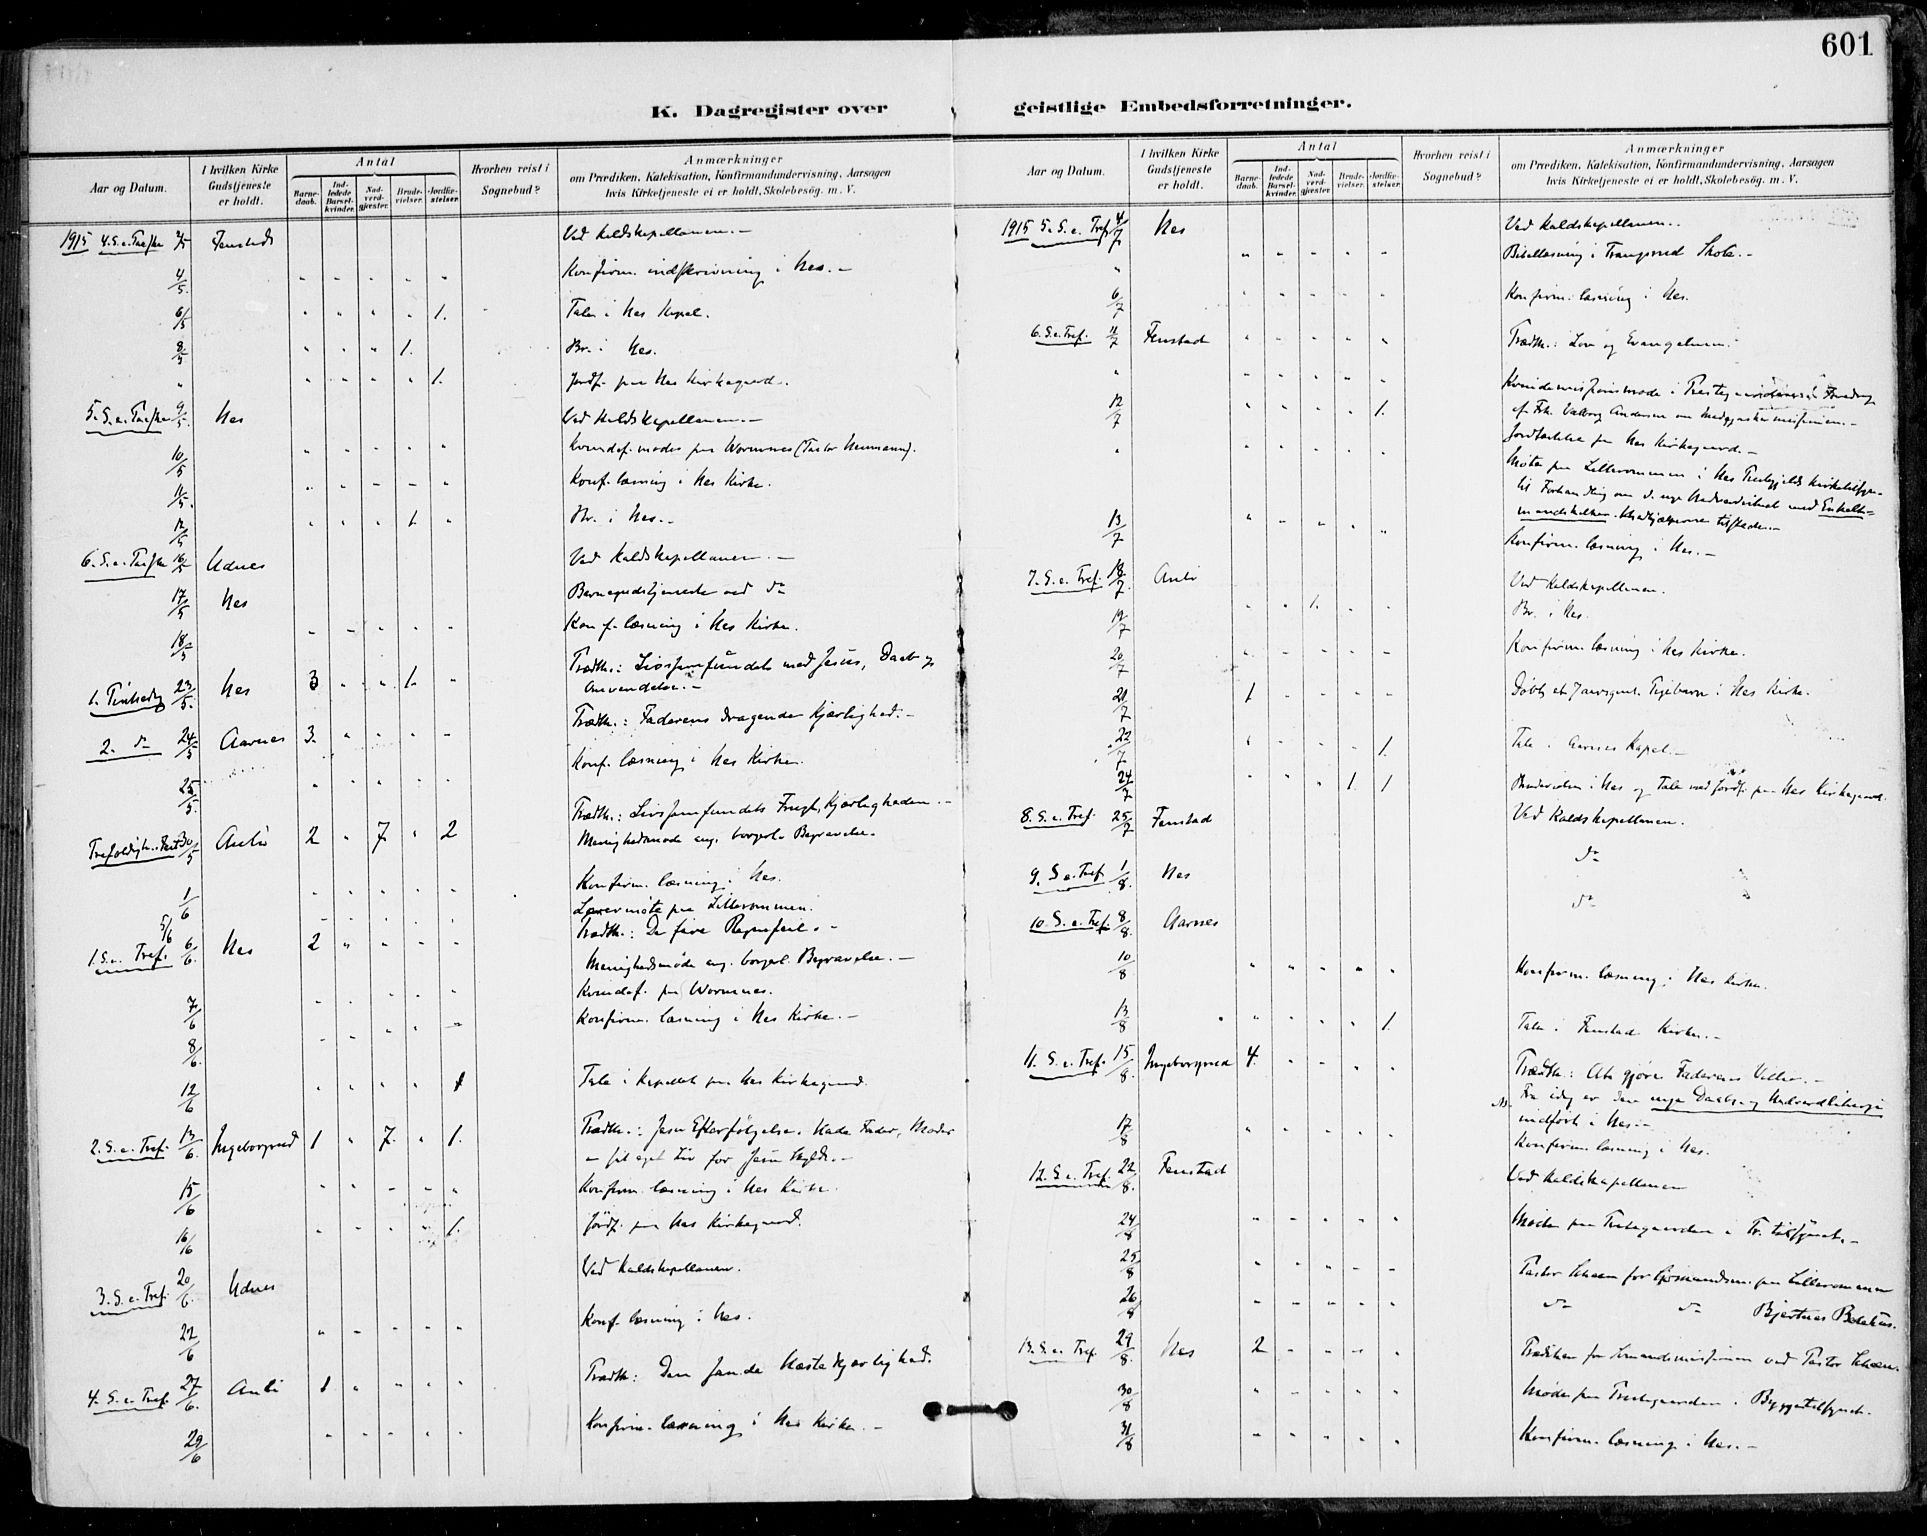 601
K. Dagregister over
geistlige Embedsforretninger.
Aar og Datum.
I hvilken Kirke Gudstjeneste er holdt.
Antal
Barnedaab.
Indledede Barselkvinder.
Nadverdgjæster.
Brudevielser.
Jordfæstelser.
Hvorhen reist i Sognebud?
Anmærkninger
om Prædiken, Katekisation, Konfirmandundervisning, Aarsagen
hvis Kirketjeneste ei er holdt, Skolebesøg. m. V.
1915 4. S. e. Paaske 2/5 Fenstad Ved Kaldskapellanen. -
4/5. Konfirm. indskrivning i Nes. -
6/5 1. Tale i Nes Kapel.
8/5 1. Br. i Nes.
" 1. Jordf. paa Nes Kirkegaard.
5. S. e. Paaske 9/5. Nes Ved Kaldskapellanen -
10/5 Kvindef. møde paa Wormnes (Pastor Neumann).
11/5. Konf. læsning i Nes Kirke.
12/5 1. Br. i Nes. -
6. S. e. Paaske 16/5 Udnes Ved Kaldskapellanen. -
17/5 Nes Barnegudstjeneste ved do
18/5 Konf. læsning i Nes Kirke.
1. Pintsedag 23/5. Nes 3 1. Prædk.: Livssamfundet med Jesus, Daab og
Anvendelse. -
2. do 24/5 Aarnes 3. Prædk.: Faderens dragende Kjærlighed. -
25/5. Konf. læsning i Nes Kirke.
Trefoldigh. fest 30/5 Auli 2 7. 2 Prædk.: Livssamfundets Frugt, Kjærligheden. -
Menighedsmøde ang. borgerl. Begravelse.
1/6 Konfirm. læsning i Nes.
5/6 Lærermøte paa Lillerommen.
1. S. e. Tref. 6/6. Nes 2 Prædk.: De fire Regnfeil. -
Menighedsmøde ang. borgerl. Begravelse. -
7/6 Kvindef. paa Wormnes.
8/6. Konfirm. læsning i Nes Kirke. -
12/6 1 Tale i Kapellet paa Nes Kirkegaard.
2. S. e. Tref. 13/6. Ingeborgrud 1 7. 1. Prædk.: Jesu Efterfølgelse. Hade Fader, Moder
- sit eget Liv for Jesu Skyld. -
15/6 Konfirm. læsning i Nes Kirke.
16/16 1. Jordf. paa Nes Kirkegaard.
3. S. e. Tref. 20/6. Udnes Ved Kaldskapellanen.
22/6 Konf. læsning i Nes.
4. S. e. Tref. 27/6. Auli 1 Prædk.: Den sande Næstekjærlighed.
29/6 Konfirm. læsning i Nes Kirke. -
Aar og Datum.
I hvilken Kirke Gudstjeneste er holdt.
Antal
Barnedaab.
Indledede Barselkvinder.
Nadverdgjæster.
Brudevielser.
Jordfæstelser.
Hvorhen reist i Sognebud?
Anmærkninger
om Prædiken, Katekisation, Konfirmandundervisning, Aarsagen
hvis Kirketjeneste ei er holdt, Skolebesøg. m. V.
1915 5. S. e. Tref. 4/7 Nes Ved Kaldskapellanen.
" Bibellæsning i Skole. -
6/7 Konfirm. læsning i Nes.
6. S. e. Tref. 11/7 Fenstad Prædk.: Lov og Evangelium.
" Kvindemisjonsmøde i Foredrag
12/7 1. af Frk. Valborg Andersen om -
Jordfæstelse paa Nes Kirkegaard. -
" Møte paa Lillerommen i Nes Prestgjelds Kirketilsyn
til Forhandling om d. nye Nadverdritual med Enkelt-
mandskalker. tilstede. -
13/7 Konfirm. læsning i Nes. -
7. S. e. Tref. 18/7 Auli Ved Kaldskapellanen.
19/7 1. Br. i Nes.
20/7 Konfirm. læsning i Nes Kirke.
21/7 1 Døbt et Pigebarn i Nes Kirke.
22/7 1. Tale i Aarnes Kapel. -
24/7 1 1 Brudevielse i Nes og Tale ved Jordf. paa Nes Kirkegaard.
8. S. e. Tref. 25/7 Fenstad Ved Kaldskapellanen.
9. S. e. Tref. 1/8. Nes do
10. S. e. Tref. 8/8. Aarnes do
10/8 Konfirm. læsning i Nes Kirke.
13/8 1. Tale i Fenstad Kirke. -
11. S. e. Tref. 15/8. Ingeborgrud 4. Prædk.: At gjøre Faderens Vilje. -
Fra idag er den nye Daabs- og Nadverdliturgi
indført i Nes. -
17/8 Konfirm. læsning i Nes.
12. S. e. Tref. 22/8. Fenstad Ved Kaldskapellanen
24/8 Møde paa Prestegaarden i -
25/8 Pastor for paa Lillerommen
26/8 do do Bjertnes Bedehus.
13. S. e. Tref. 29/8. Nes 2 Prædiken for ved Pastor
30/8 Møde paa Prestegaarden i Byggetilsynet.
31/8 Konfirm. læsning i Nes. -